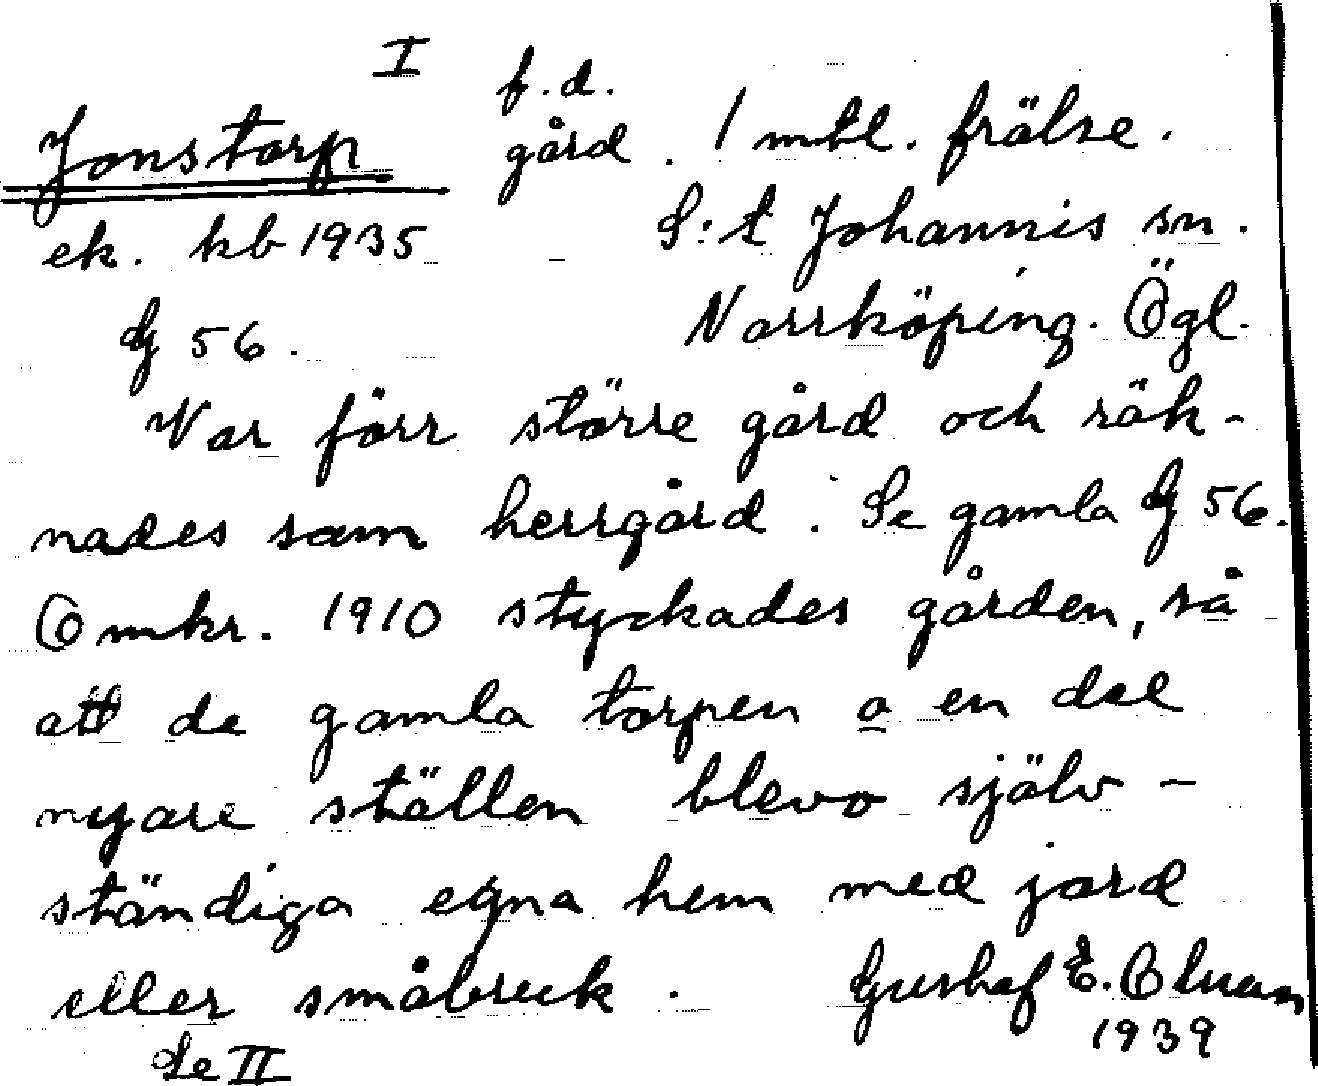 I
f.d.
Jonstorp gård. 1 mtl. frälse.
ek. kb 1935 S:t Johannis sn.
G 56. Norrköping. Ögl.
Var förr större gård och räk-
nades som herrgård. Se gamla G 56.
Omkr. 1910 styckades gården, så
att de gamla torpen o en del
nyare ställen blevo själv-
ständiga egna hem med jord
eller småbruk. Gustaf E.
1939
Se II